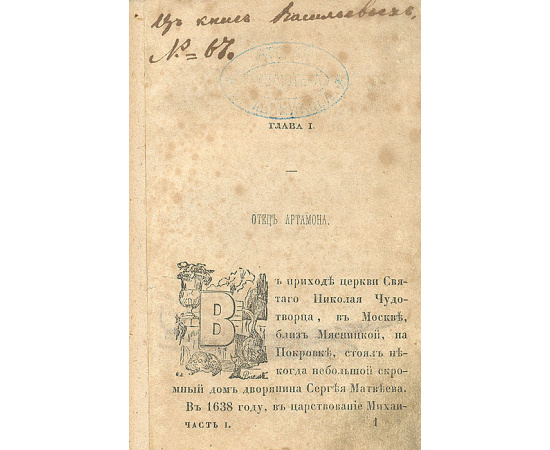 Изъ книгъ Васильевыхъ,
№ = 67.
ГЛАВА I.
—
ОТЕЦЪ АРТАМОНА.
Въ приходѣ церкви Свя-
таго Николая Чудо-
творца, въ Москвѣ,
близъ Мясницкой, на
Покровкѣ, стоялъ нѣ-
когда небольшой скро-
мный домъ дворянина Сергѣя Матвѣева.
Въ 1638 году, въ царствованіе Михаи-
ЧАСТЬ I. 1